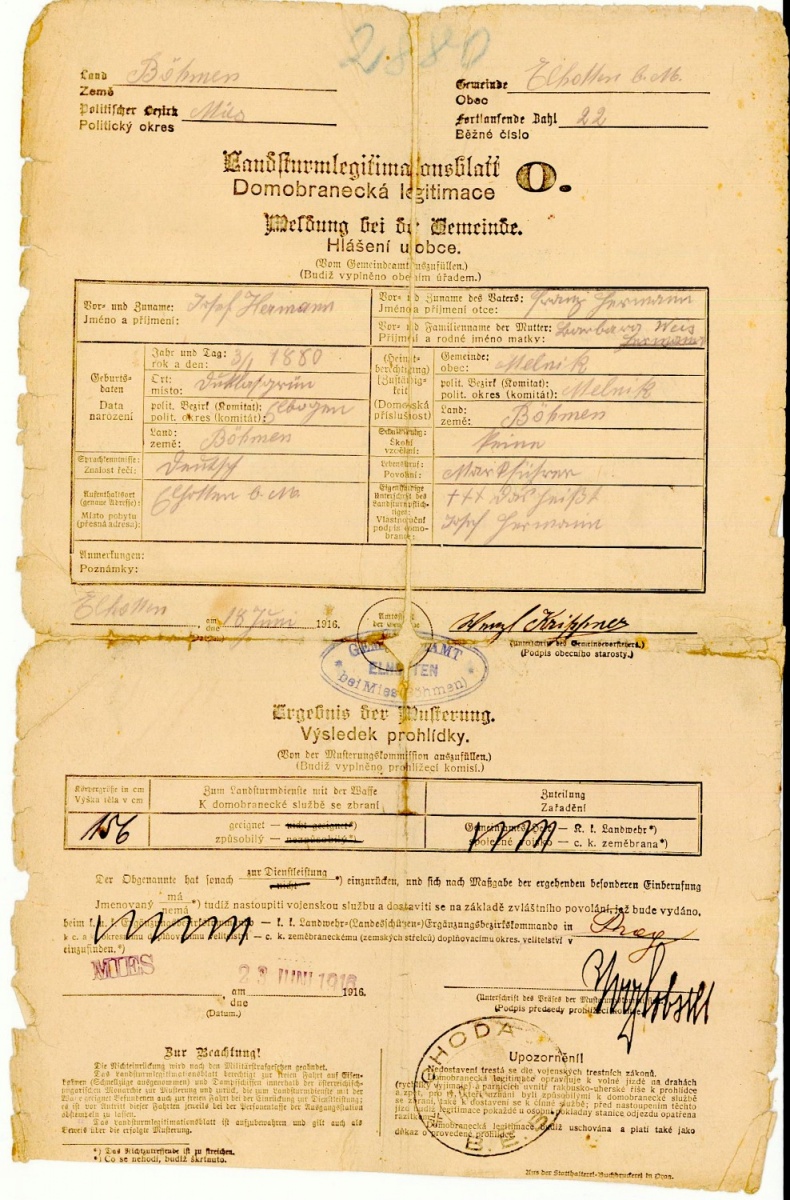 2880
Land Böhmen
Země
Gemeinde Elhotten b. M.
Obec
Politischer Bezirk Mies
Politický okres
Fortlaufende Zahl 22
Běžné číslo
Landsturmlegitimationsblatt
Domobranecká legitimace
O.
Meldung bei der Gemeinde.
Hlášení u obce.
(Vom Gemeindeamt auszufüllen.)
(Budiž vyplněno obecním úřadem.)
Vor- und Zuname: Josef Hermann
Jméno a příjmení:
Vor- und Zuname des Vaters: Franz Hermann
Jméno a příjmení otce:
Vor- und Familienname der Mutter: Barbara Weis
Příjmení a rodné jméno matky: Hermann
Geburts-
daten
Data
narození
Jahr und Tag: 3/1 1880
rok a den:
Ort: Duklasgrün
místo:
polit. Bezirk (Komitat): Elbogen
polit. okres (komitát):
Land: Böhmen
země:
(Heimat-
berechtigung)
(Zuständig-
keit)
(Domovská
příslušnost)
Gemeinde:
obec: Melnik
polit. Bezirk (Komitat):
polit. okres (komitát): Melnik
Land:
země: Böhmen
Schulbildung:
Školní
vzdělání:
keine
Sprachkenntnisse:
Znalost řečí:
Deutsch
Lebensberuf:
Povolání:
Aufenthaltsort
(genaue Adresse):
Místo pobytu
(přesná adresa):
Elhotten b. M.
Eigenhändige
Unterschrift des
Landsturmpflich-
tigen:
Vlastnoruční
podpis domo-
brance:
+++ das heißt
Josef Hermann
Anmerkungen:
Poznámky:
Elhotten am 18 Juni 1916.
dne
Wenzl Krippner
(Unterschrift des Gemeindevorstehers.)
(Podpis obecního starosty.)
GEMEINDEAMT
ELHOTTEN
bei Mies (Böhmen)
Ergebnis der Musterung.
Výsledek prohlídky.
(Von der Musterungskommission auszufüllen.)
(Budiž vyplněno prohlížecí komisí.)
Körpergröße in cm
Výška těla v cm
Zum Landsturmdienste mit der Waffe
K domobranecké službě se zbraní
Zuteilung
Zařadění
156
geeignet — nicht geeignet*)
způsobilý — nezpůsobilý*)
Gemeinsames Heer — K. k. Landwehr*)
společné vojsko — c. k. zeměbrana*)
Der Obgenannte hat sonach zur Dienstleistung
nicht *) einzurücken, und sich nach Maßgabe der ergehenden besonderen Einberufung
Jmenovaný má
nemá*) tudíž nastoupiti vojenskou službu a dostaviti se na základě zvláštního povolání, jež bude vydáno,
beim k. u. k. Ergänzungsbezirkskommando — k. k. Landwehr-(Landesschützen-)Ergänzungsbezirkskommando in Prag
k c. a k. okresnímu doplňovacímu velitelství — c. k. zeměbraneckému (zemských střelců) doplňovacímu okres. velitelství v
einzufinden.*)
MIES
23 JUNI 1916
am 1916.
dne
(Datum.)
(Unterschrift des Präses der Musterungskommission.)
(Podpis předsedy prohlížecí komise.)
Zur Beachtung!
Die Nichteinrückung wird nach den Militärstrafgesetzen geahndet.
Das Landsturmlegitimationsblatt berechtigt zur freien Fahrt auf Eisen-
bahnen (Schnellzüge ausgenommen) und Dampfschiffen innerhalb der österreichisch-
ungarischen Monarchie zur Musterung und zurück, die zum Landsturmdienste mit der
Waffe geeignet Befundenen auch zur freien Fahrt bei der Einrückung zur Dienstleistung;
es ist vor Antritt dieser Fahrten jeweils bei der Personenkasse der Ausgangsstation
abstempeln zu lassen.
Das Landsturmlegitimationsblatt ist aufzubewahren und gilt auch als
Beweis über die erfolgte Musterung.
*) Das Nichtzutreffende ist zu streichen.
*) Co se nehodí, budiž škrtnuto.
Upozornění!
Nedostavení trestá se dle vojenských trestních zákonů.
Domobranecká legitimace opravňuje k volné jízdě na drahách
(rychlíky vyjímaje) a parnících uvnitř rakousko-uherské říše k prohlídce
a zpět, pro ty, kteří uznáni byli způsobilými k domobranecké službě
se zbraní, také k dostavení se k činné službě; před nastoupením těchto
jízd budiž legitimace pokaždé u osobní pokladny stanice odjezdu opatřena
razítkem.
Domobranecká legitimace budiž uschována a platí také jako
důkaz o provedené prohlídce.
Aus der Statthalterei-Buchdruckerei in Prag.